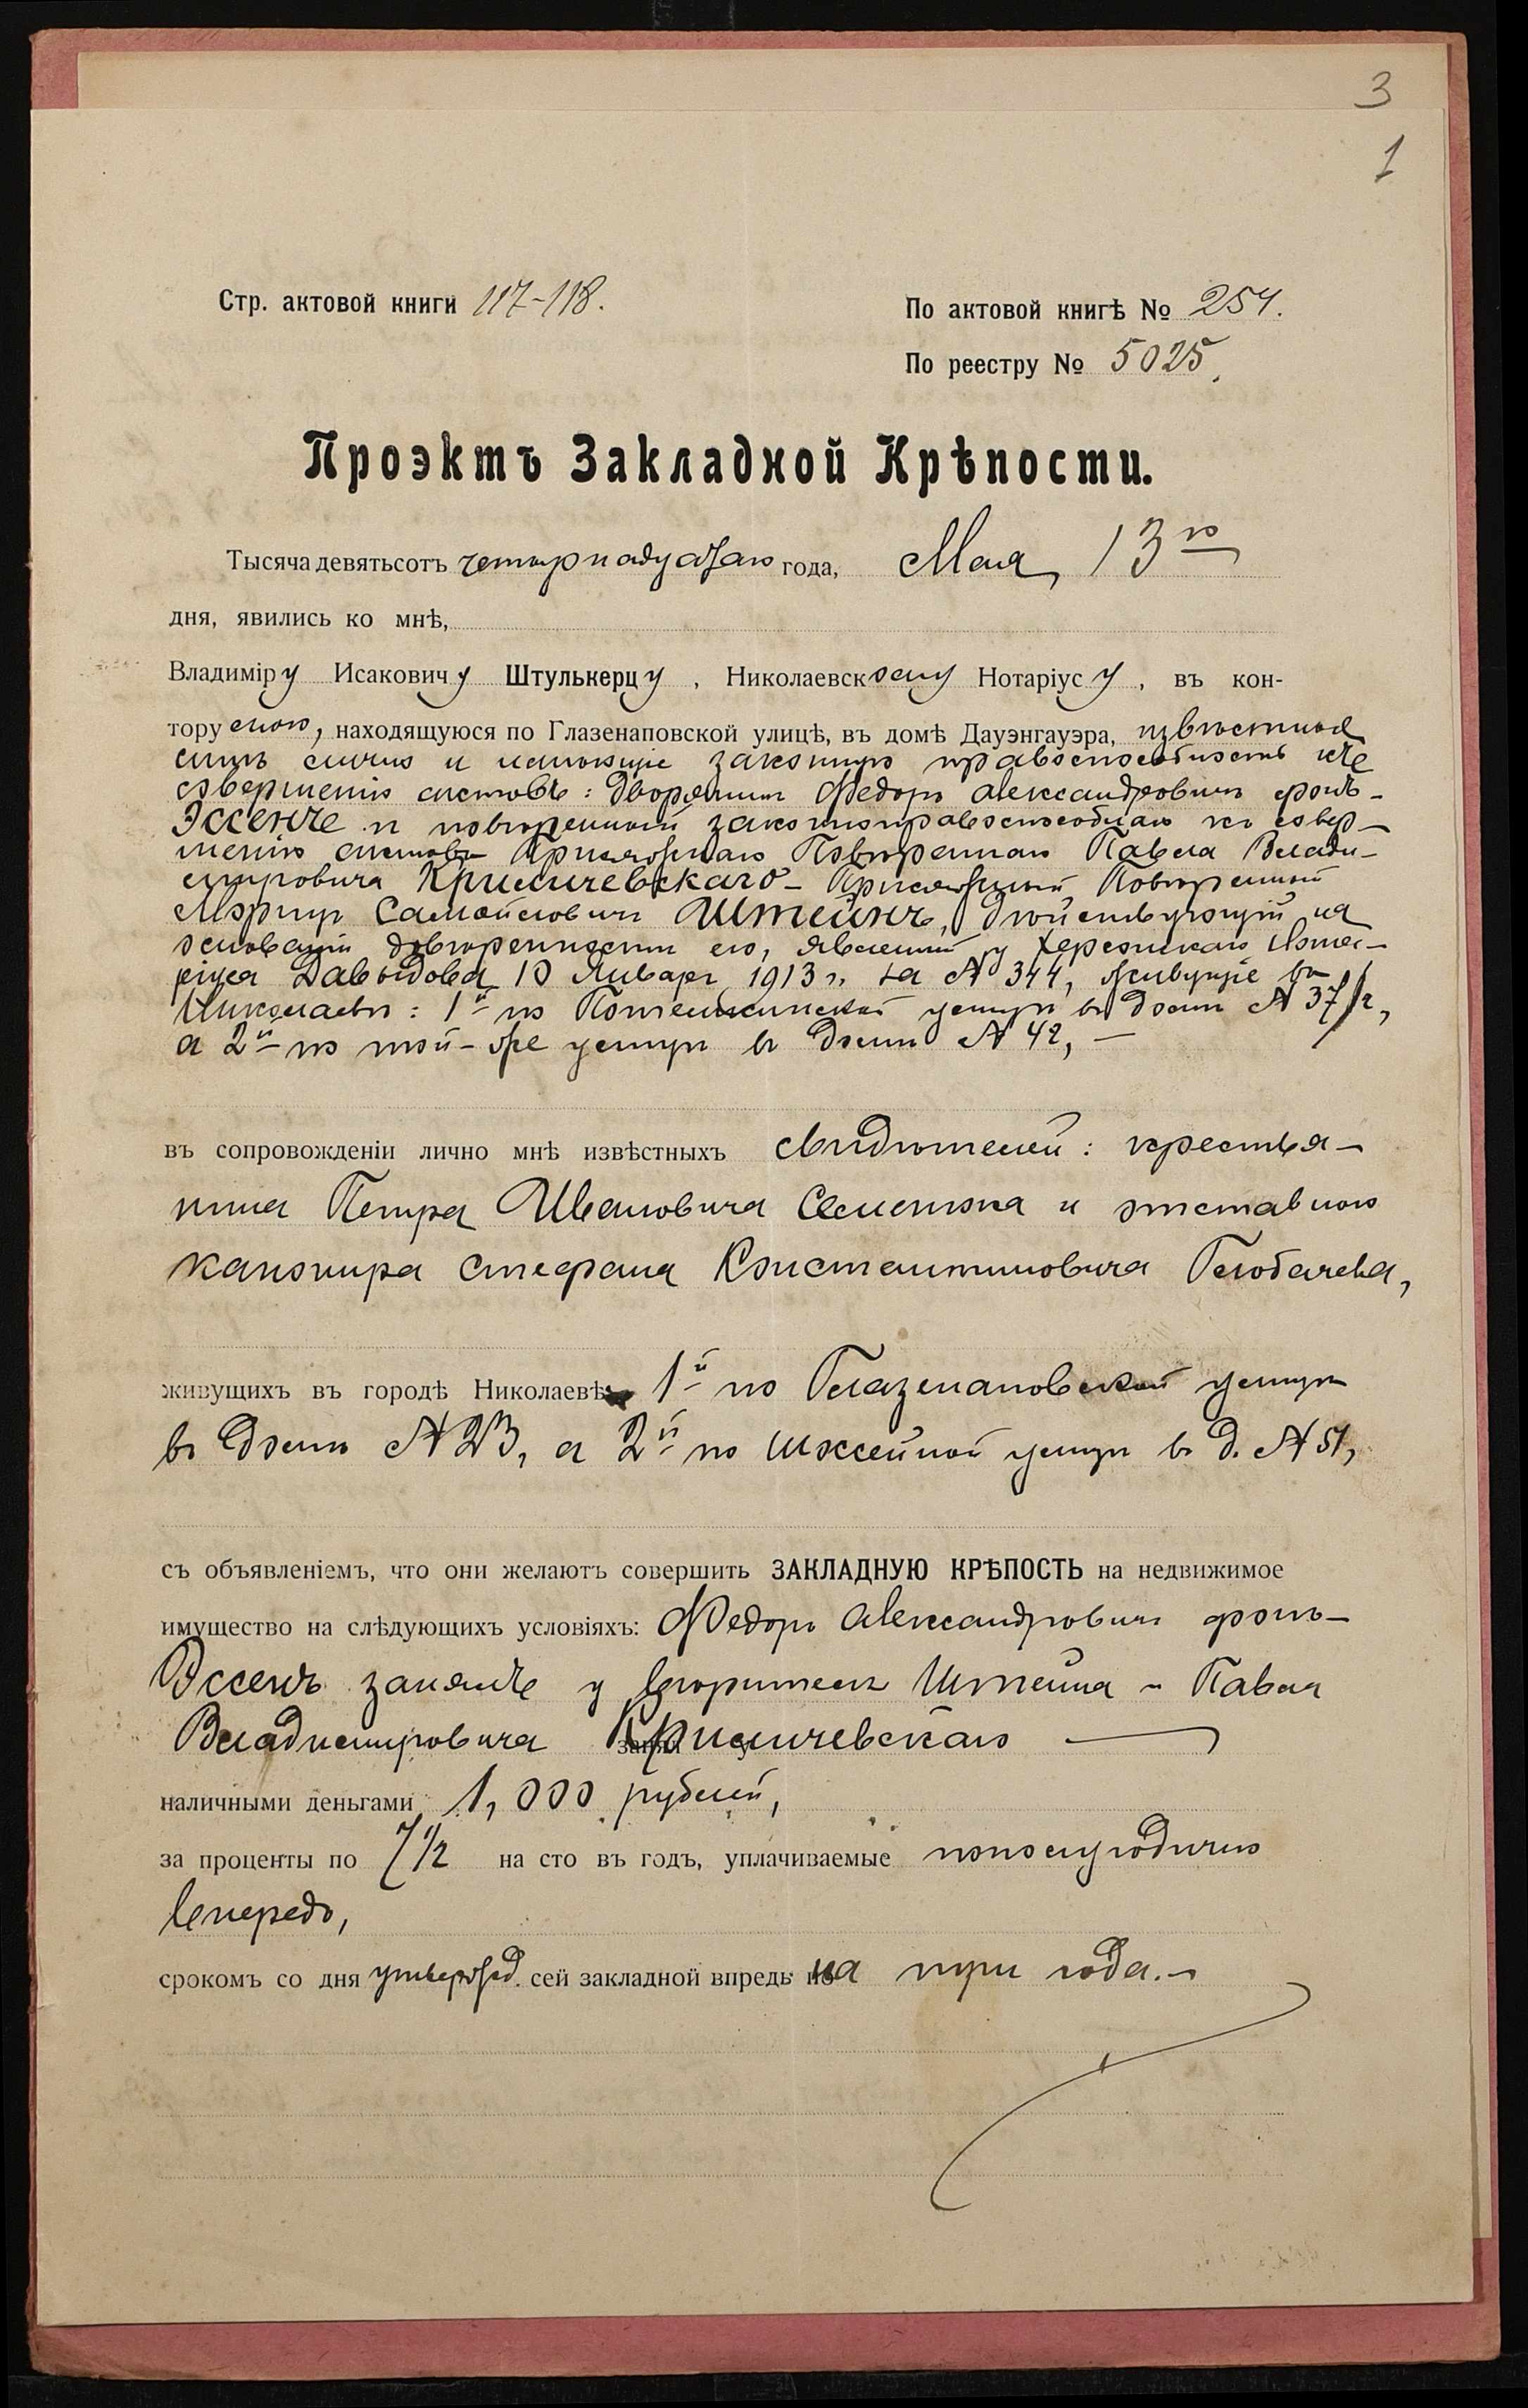 3
1
Стр. актовой книги 117-118.
По актовой книгѣ № 254.
По реестру № 5025.
Проэктъ Закладной Крѣпости.
Тысяча девятьсотъ четырнадцатаго года, Мая 13го
дня, явились ко мнѣ,
Владиміру Исаковичу Штулькерцу, Николаевскому Нотаріусу, въ кон-
тору мою, находящуюся по Глазенаповской улицѣ, въ домѣ Дауэнгауэра, извѣстные
мнѣ лично и имѣющіе законную правоспособность къ
совершенію актовъ: дворянинъ Федоръ Александровичъ фонъ-
Эссенъ и повѣренный законноправоспособнаго къ совер-
шенію актовъ Присяжнаго Повѣреннаго Павла Влади-
мировича Кримичевскаго - Присяжный Повѣренный
Самойловичъ Штейнъ, дѣйствующій на
основаніи довѣренности его, явленной у Херсонскаго Нота-
ріуса Давыдова 10 Января 1913 г. за № 344, живущіе въ
Николаевѣ: 1й по Потемкинской улицѣ въ домѣ № 37/2,
а 2й по той-же улицѣ въ домѣ № 42, —
въ сопровожденіи лично мнѣ извѣстныхъ свидѣтелей: крестья-
нина Петра Ивановича Семенюка и отставного
канонира Стефана Константиновича Глобачева,
живущихъ въ городѣ Николаевѣ: 1й по Глазенаповской улицѣ
въ домѣ № 23, а 2й по улицѣ въ д. № 51,
съ объявленіемъ, что они желаютъ совершить ЗАКЛАДНУЮ КРѢПОСТЬ на недвижимое
имущество на слѣдующихъ условіяхъ: Федоръ Александровичъ фонъ-
Эссенъ занялъ у вѣрителя Штейна - Павла
Владимировича Кримичевскаго —
наличными деньгами 1,000 рублей,
за проценты по 7 1/2 на сто въ годъ, уплачиваемые пополугодично
впередъ,
срокомъ со дня утвержд. сей закладной впредь на три года. -